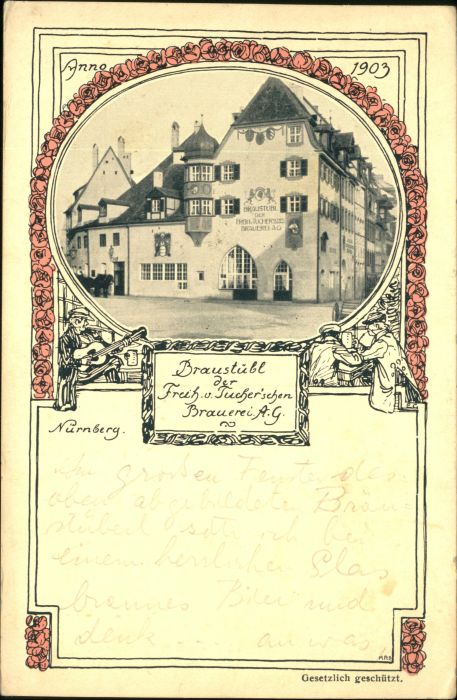 Anno 1903
BRAUSTÜBL
DER
FREIH. v. TUCHER'SCHEN
BRAUEREI A.G.
Braustübl
der
Freih. v. Tucher'schen
Brauerei, A.G.
Nürnberg.
Am großen Fenster des
oben abgebildeten Bräu-
stüberl sitze ich bei
einem herrlichen Glas
braunes Bier und
denk .... an was
Gesetzlich geschützt.